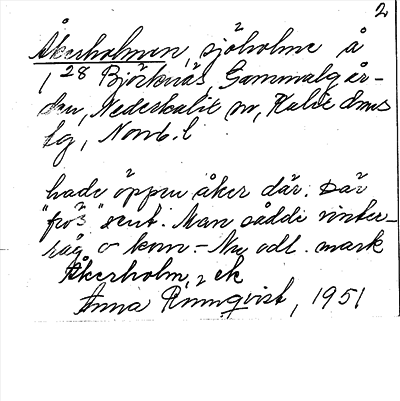 2
Åkerholmen, sjöholme å
1 28 Björknäs, Gammelgår-
den, Nederkalix sn, Kalix dms
lg, Nornb. l
hade öppen åker där. Där
"frös" sent. Man sådde vinter-
råg o korn. - Nu odl. mark
Åkerholm, ek
Anna Rönnqvist, 1951